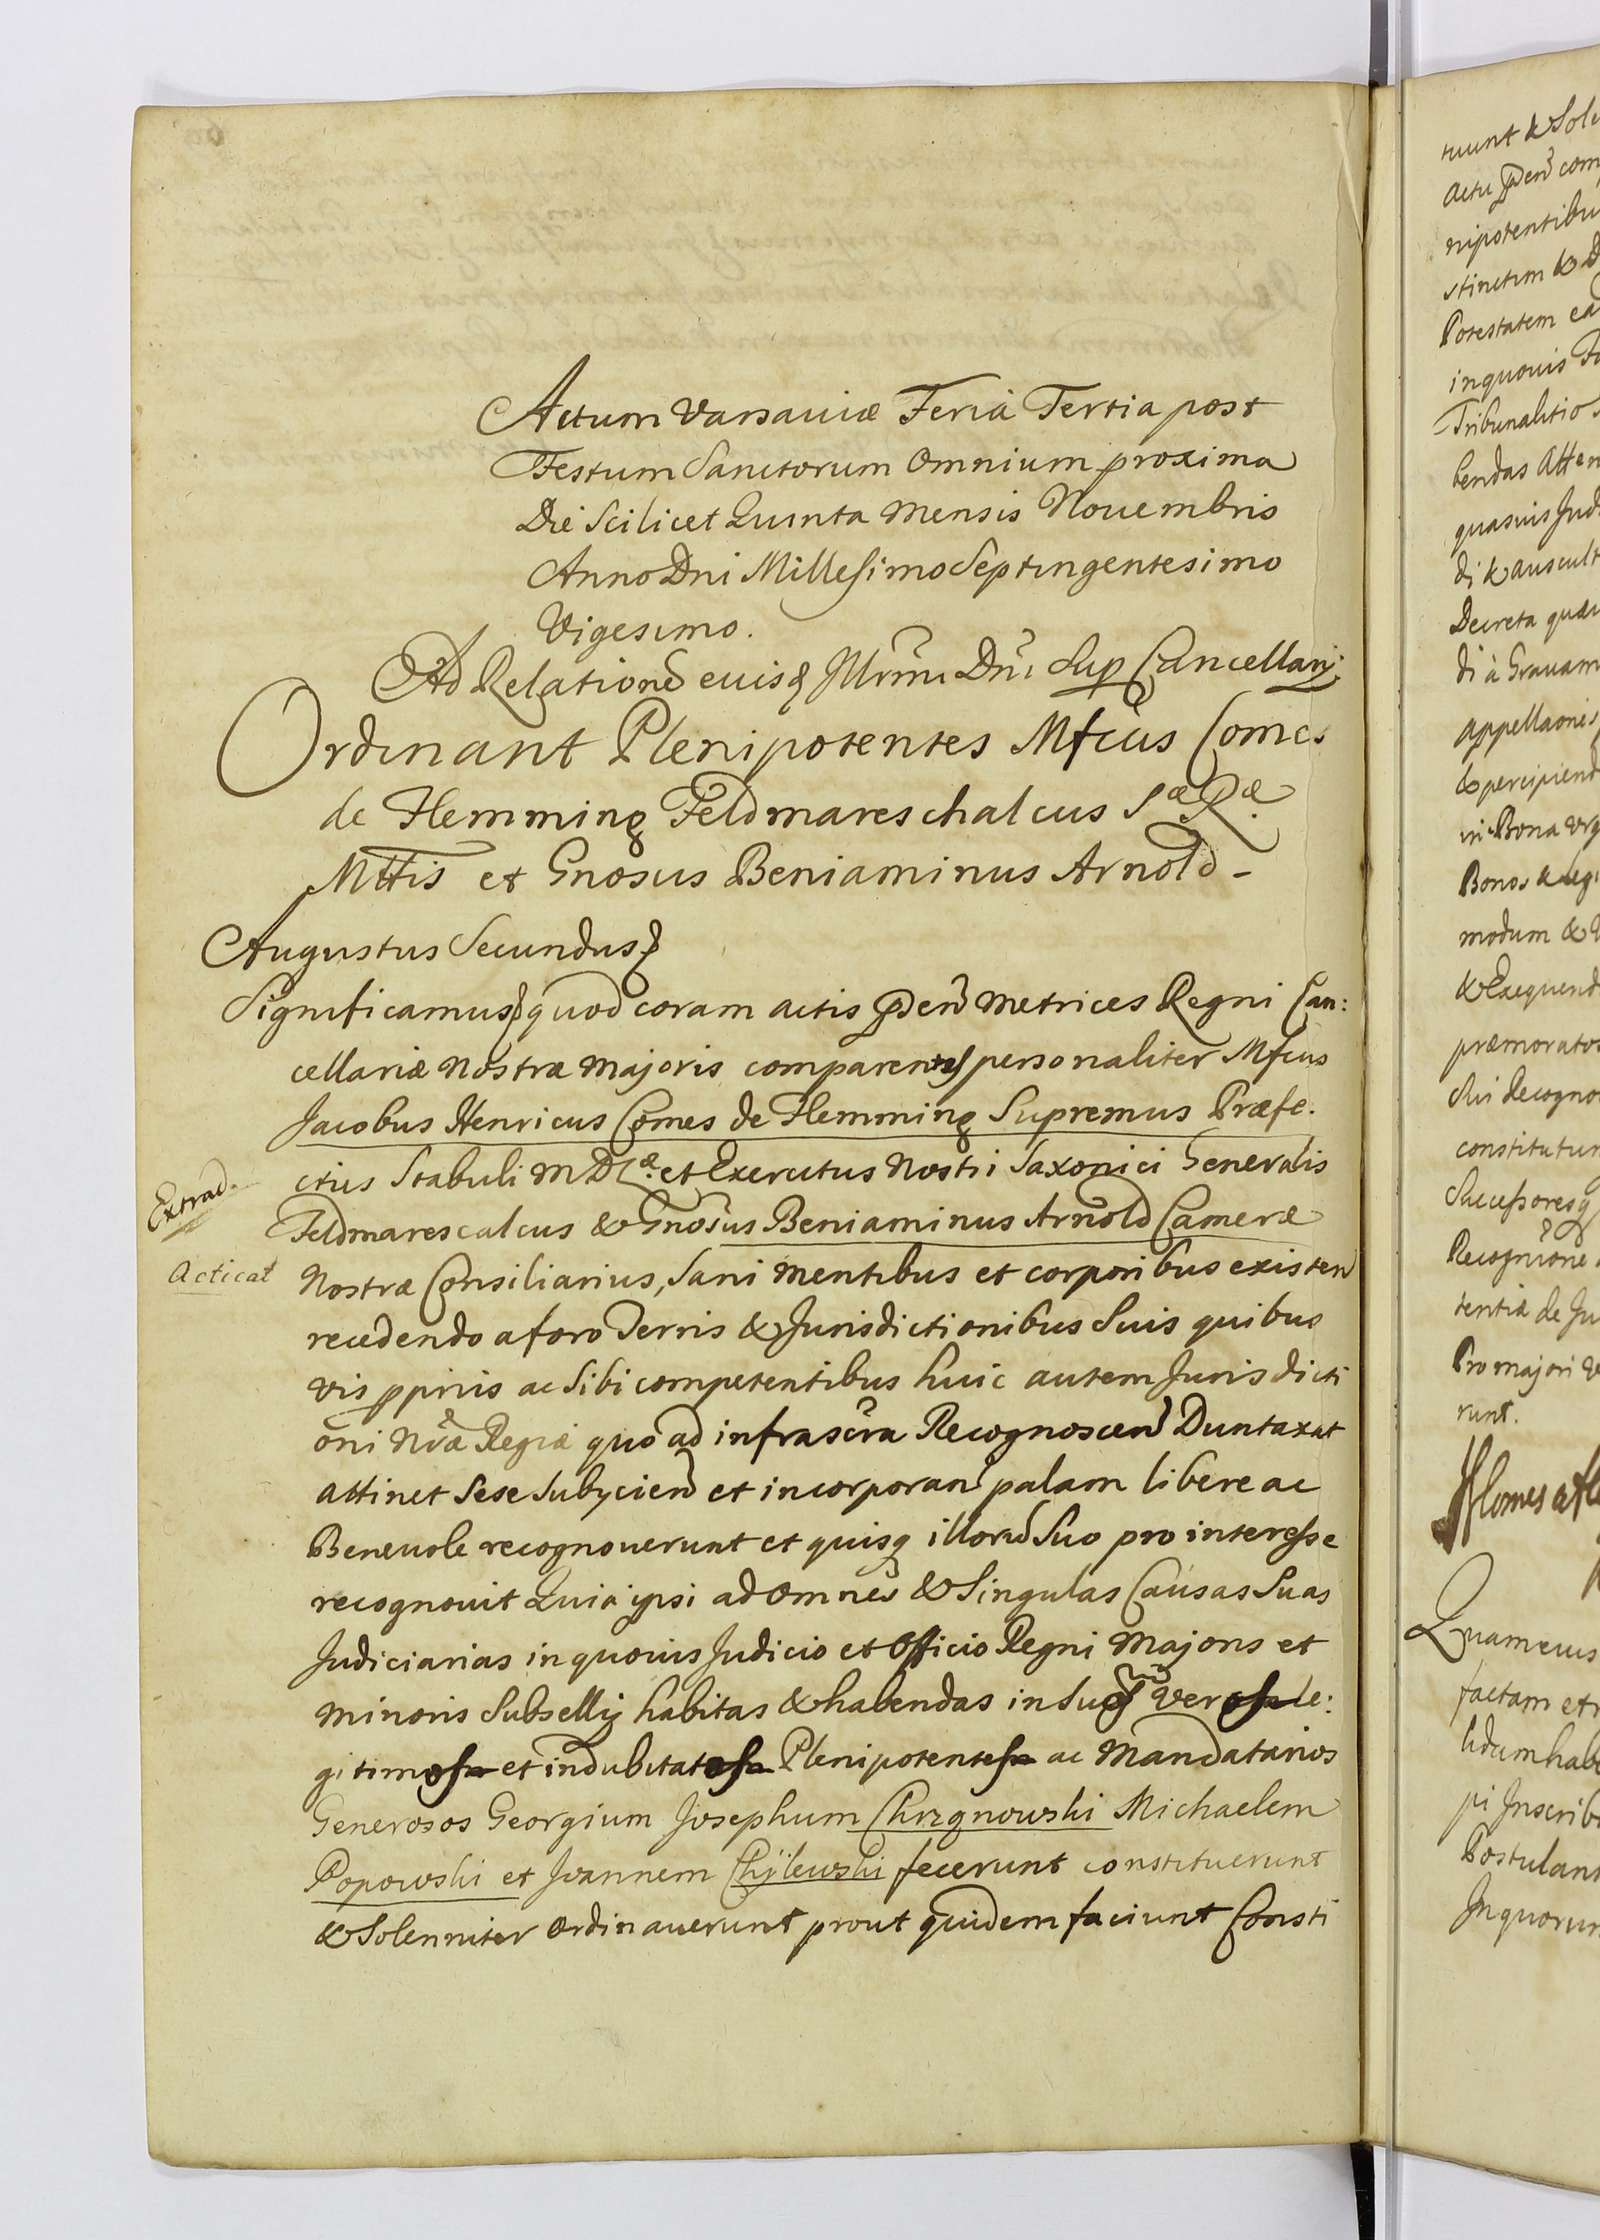 Actum Varsaviæ Feria Tertia post
Festum Sanctorum Omnium proxima
Die Scilicet Quinta Mensis Novembris
Anno Dni Millesimo Septingentesimo
Vigesimo.
Ad Relationẽ eius Illrmi Dni Sup Cancellarij
Ordinant Plenipotentes Mfcus Comes
de Flemming Feldmareschalcus S.æ R.æ
Mttis et Gnosus Beniaminus Arnold -
Augustus Secundus
Significamus quod coram actis Metrices Regni Can:
cellariæ Nostræ Majoris comparentes personaliter Mfcus
Jacobus Henricus Comes de Flemming Supremus Præfe.
ctus Stabuli M D L.æ et Exercitus Nostri Saxonici Generalis
Extrad.
Feldmarescalcus & Gnosus Beniaminus Arnold Cameræ
Acticat
Nostræ Consiliarius, Sani Mentibus et corporibus existen
recedendo a foro Terris & Jurisdictionibus Suis quibus
vis ppriis ac Sibi competentibus huic autem Jurisdicti
oni Nræ Regiæ quo ad infrascra Recognoscen Duntaxat
attinet Sese Subjicien et incorporan palam libere ac
Benevole recognoverunt et quisq illorũ Suo pro interesse
recognovit Quia ipsi ad omnes & Singulas Causas Suas
Judiciarias in quovis Judicio et Officio Regni Majoris et
Minoris Subsellij habitas & habendas in Suos veros le:
gitimos et indubitatos Plenipotentes ac Mandatarios
Generosos Georgium Josephum Chrzanowski Michaelem
Popowski et Joannem Chylewski fecerunt constituerunt
& Solenniter ordinaverunt prout quidem faciunt Consti
tuunt & Sole
Actu com
nipotentibu
stinctim &
Potestatem ea
in quovis Fo
Tribunalitio
bendas Atten
quasvis Jud
di & auscult
Decreta quæv
di à Gravam
appellaonis
& percipiend
in Bona
Bonos & Legi
modum &
& Exequend
præmoratos
Sui Recogno
constitutum
Successoresq
Recognione
tentiæ de Ju
Pro majori
runt.
Quam eius
factam et r
lidam habe
pi Inscribi
Postulans
In quorum